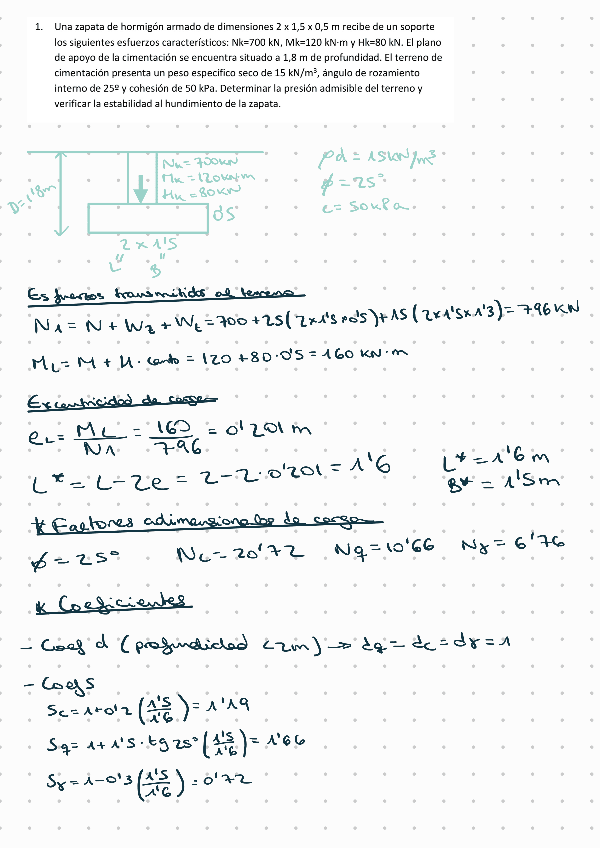 1. Una zapata de hormigón armado de dimensiones 2 x 1,5 x 0,5 m recibe de un soporte
los siguientes esfuerzos característicos: Nk=700 kN, Mk=120 kN·m y Hk=80 kN. El plano
de apoyo de la cimentación se encuentra situado a 1,8 m de profundidad. El terreno de
cimentación presenta un peso especifico seco de 15 kN/m³, ángulo de rozamiento
interno de 25º y cohesión de 50 kPa. Determinar la presión admisible del terreno y
verificar la estabilidad al hundimiento de la zapata.
D=1'8m
Nk=700KN
Mk=120KN+m
Hk=80KN
0'5
2 x 1'5
L" B"
ρd = 15KN/m³
ϕ = 25°
c = 50kPa
Esfuerzos transmitidos al terreno
N1 = N + Wz + Wt = 700 + 25(2x1'5x0'5) + 15(2x1'5x1'3) = 796 KN
ML = M + H · canto = 120 + 80·0'5 = 160 KN·m
Excentricidad de carga
eL = ML/N1 = 160/796 = 0'201 m
L* = L - 2e = 2 - 2·0'201 = 1'6
L* = 1'6 m
B* = 1'5 m
* Factores adimensionales de carga
ϕ = 25° Nc = 20'72 Nq = 10'66 Nγ = 6'76
* Coeficientes
- Coef d (profundidad <2m) → dq = dc = dγ = 1
- Coefs
Sc = 1+0'2 (1'5/1'6) = 1'19
Sq = 1+1'5·tg25° (1'5/1'6) = 1'66
Sγ = 1-0'3 (1'5/1'6) = 0'72